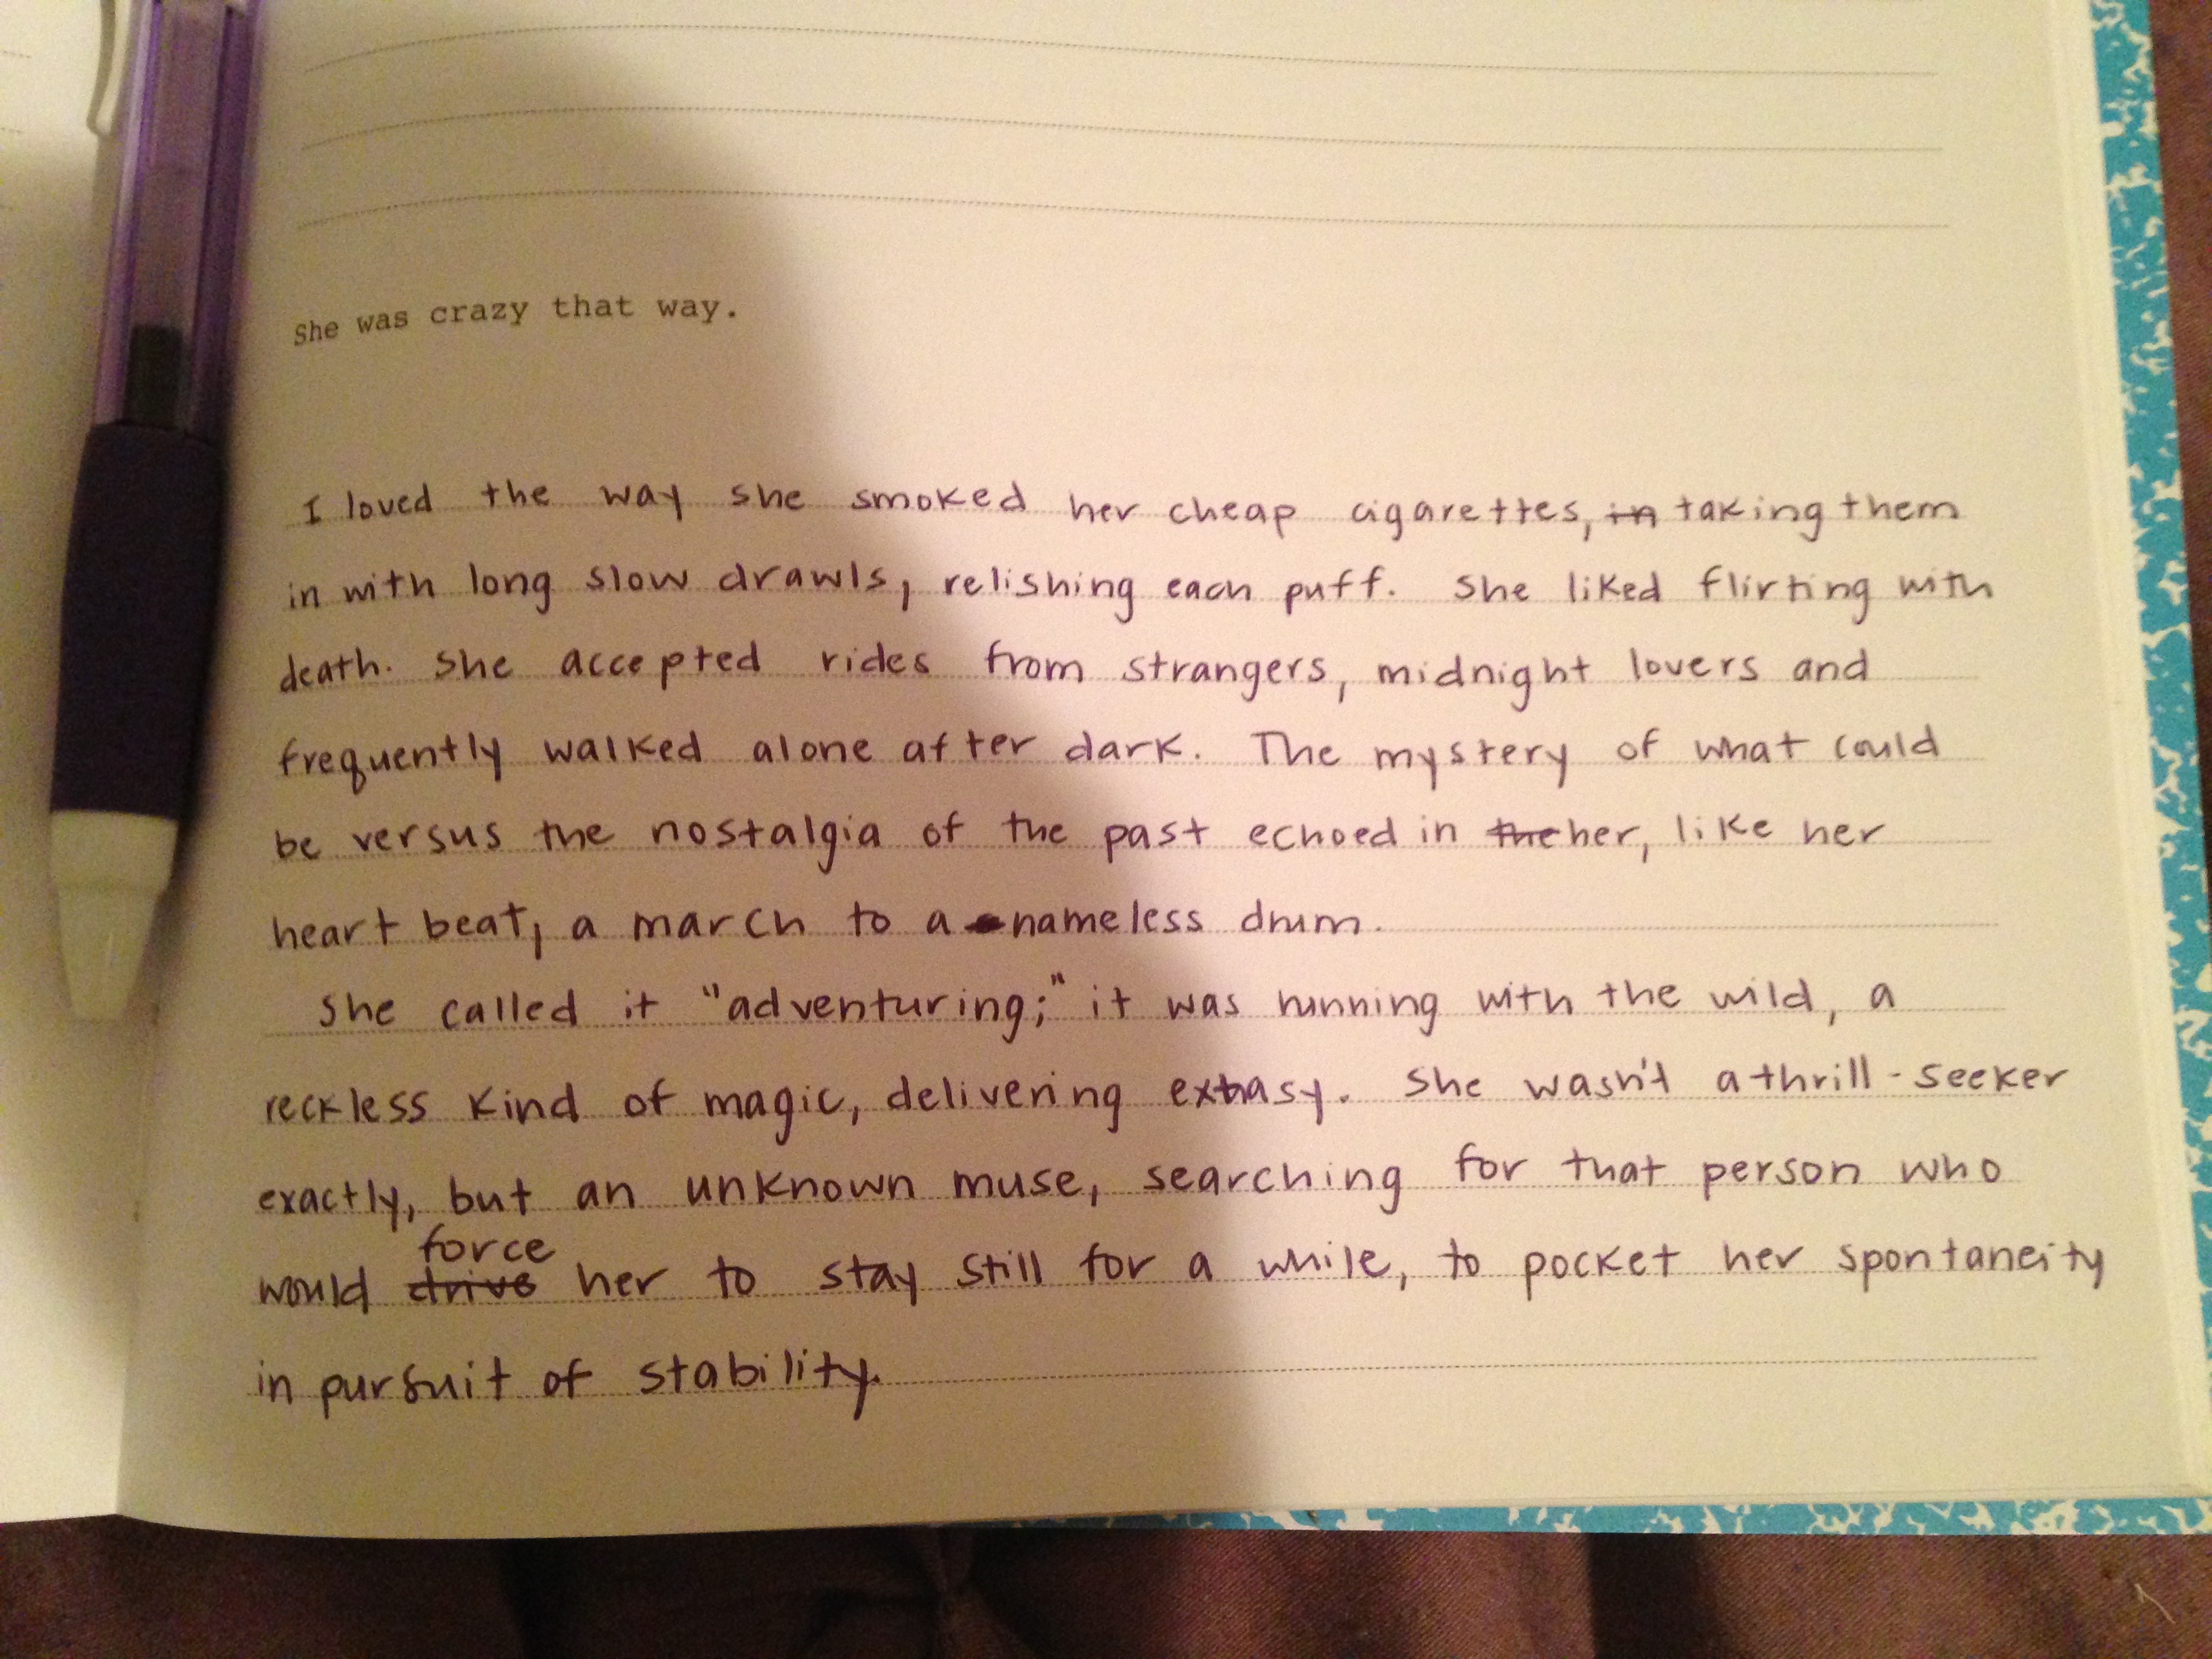 She was crazy that way.
I loved the way she smoked her cheap cigarettes, in taking them
in with long slow drawls, relishing each puff. She liked flirting with
death. She accepted rides from strangers, midnight lovers and
frequently walked alone after dark. The mystery of what could
be versus the nostalgia of the past echoed in the her, like her
heart beat, a march to a nameless drum.
She called it "adventuring;" it was running with the wild, a
reckless kind of magic, delivering extasy. She wasn't a thrill-seeker
exactly, but an unknown muse, searching for that person who
force
would drive her to stay still for a while, to pocket her spontaneity
in pursuit of stability.